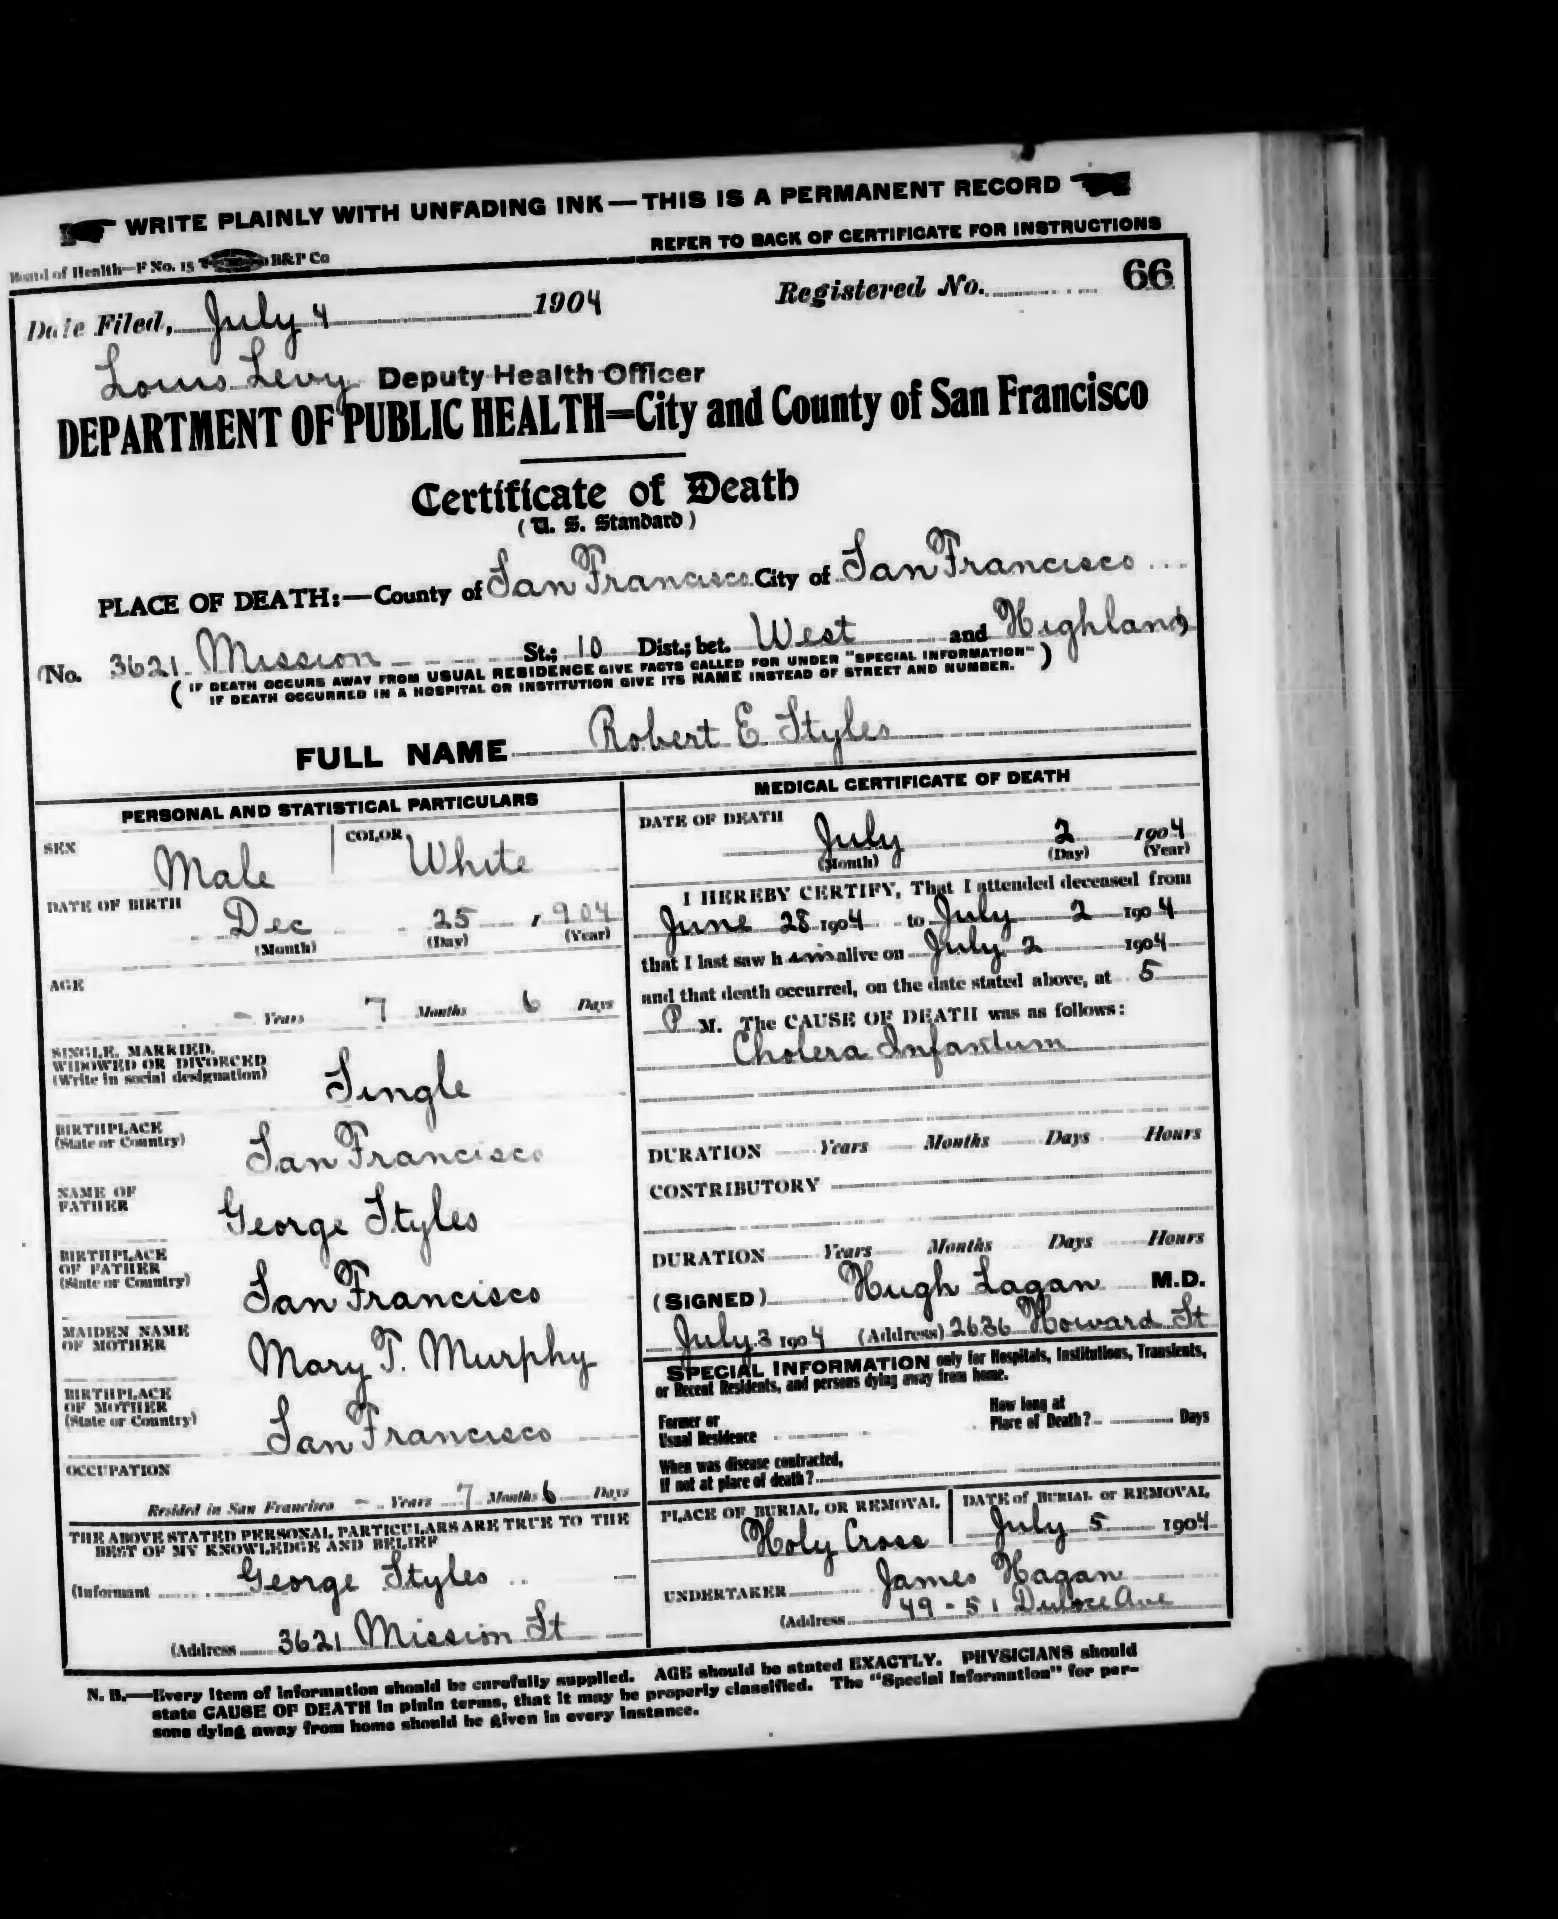 WRITE PLAINLY WITH UNFADING INK—THIS IS A PERMANENT RECORD
Board of Health—F No. 15 B&P Co
REFER TO BACK OF CERTIFICATE FOR INSTRUCTIONS
Date Filed, July 4 1904 Registered No. 66
Louis Levy Deputy Health Officer
DEPARTMENT OF PUBLIC HEALTH—City and County of San Francisco
Certificate of Death
(U. S. Standard)
PLACE OF DEATH:—County of San Francisco City of San Francisco
(No. 3621 Mission St.; 10 Dist.; bet. West and Highland)
(IF DEATH OCCURS AWAY FROM USUAL RESIDENCE GIVE FACTS CALLED FOR UNDER "SPECIAL INFORMATION"
IF DEATH OCCURRED IN A HOSPITAL OR INSTITUTION GIVE ITS NAME INSTEAD OF STREET AND NUMBER.)
FULL NAME Robert E Styles
PERSONAL AND STATISTICAL PARTICULARS
SEX Male COLOR White
DATE OF BIRTH Dec 25 1904
(Month) (Day) (Year)
AGE
– Years 7 Months 6 Days
SINGLE, MARRIED,
WIDOWED OR DIVORCED
(Write in social designation) Single
BIRTHPLACE
(State or Country) San Francisco
NAME OF
FATHER George Styles
BIRTHPLACE
OF FATHER
(State or Country) San Francisco
MAIDEN NAME
OF MOTHER Mary T. Murphy
BIRTHPLACE
OF MOTHER
(State or Country) San Francisco
OCCUPATION
Resided in San Francisco – Years 7 Months 6 Days
THE ABOVE STATED PERSONAL PARTICULARS ARE TRUE TO THE
BEST OF MY KNOWLEDGE AND BELIEF
(Informant George Styles
(Address 3621 Mission St
MEDICAL CERTIFICATE OF DEATH
DATE OF DEATH
July 2 1904
(Month) (Day) (Year)
I HEREBY CERTIFY, That I attended deceased from
June 28 1904 to July 2 1904
that I last saw him alive on July 2 1904
and that death occurred, on the date stated above, at 5
P M. The CAUSE OF DEATH was as follows:
Cholera Infantum
DURATION Years Months Days Hours
CONTRIBUTORY
DURATION Years Months Days Hours
(SIGNED) Hugh Lagan M.D.
July 3 1904 (Address) 2636 Howard St
SPECIAL INFORMATION only for Hospitals, Institutions, Transients,
or Recent Residents, and persons dying away from home.
Former or
Usual Residence
How long at
Place of Death? Days
When was disease contracted,
If not at place of death?
PLACE OF BURIAL OR REMOVAL
Holy Cross
DATE of BURIAL or REMOVAL
July 5 1904
UNDERTAKER James Hagan
(Address 49-51 Duboce Ave
N. B.—Every item of information should be carefully supplied. AGE should be stated EXACTLY. PHYSICIANS should
state CAUSE OF DEATH in plain terms, that it may be properly classified. The "Special Information" for per-
sons dying away from home should be given in every instance.